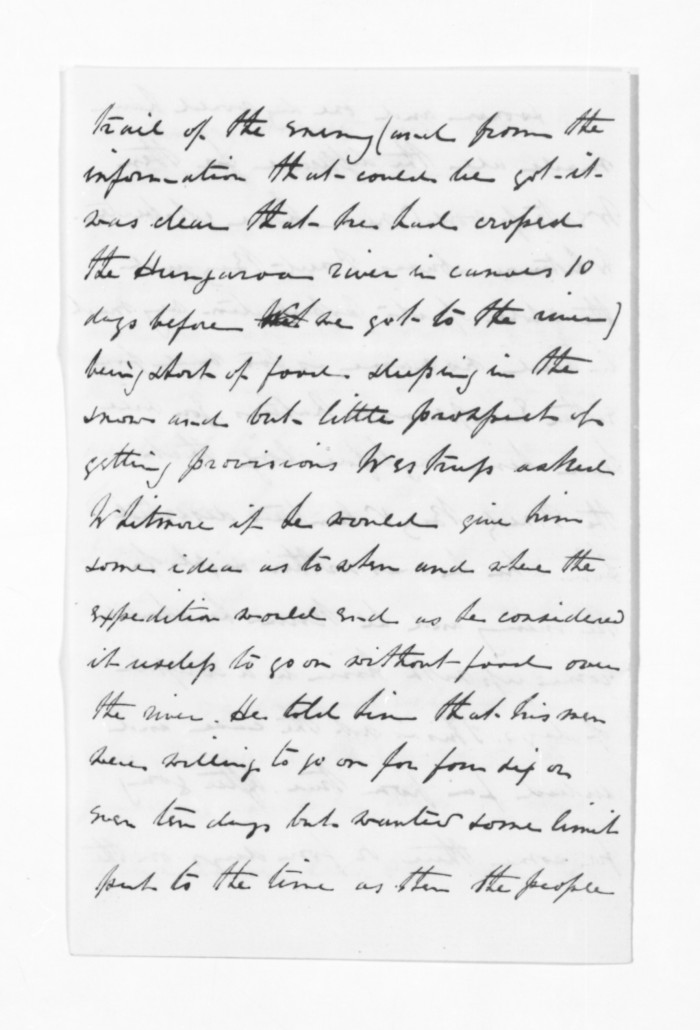 trail of the enemy (and from the
information that could be got it
was clear that he had crossed
the Hungaroa river in canoes 10
days before we got to the river)
being short of food sleeping in the
snow and but little prospect of
getting provisions Westrup asked
Whitmore if he would give him
some idea as to when and where the
expedition would end as he considered
it useless to go on without food over
the river. He told him that his men
were willing to go on for four six or
even ten days but wanted some limit
put to the time as then the people